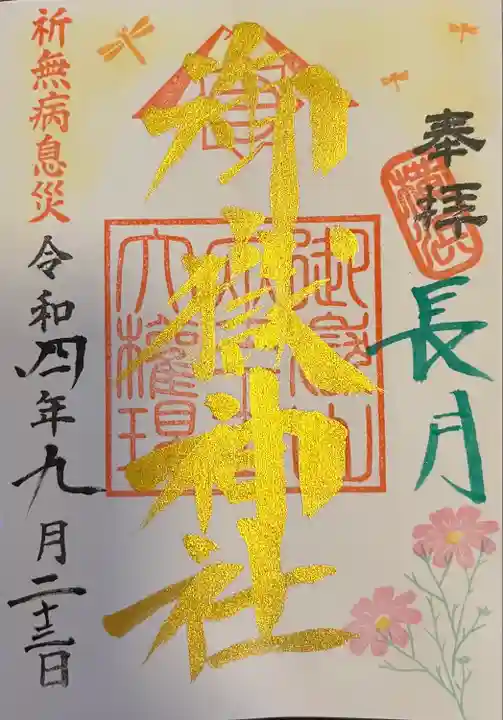 奉拝
長月
御嶽神社
祈無病息災
令和四年九月二十三日